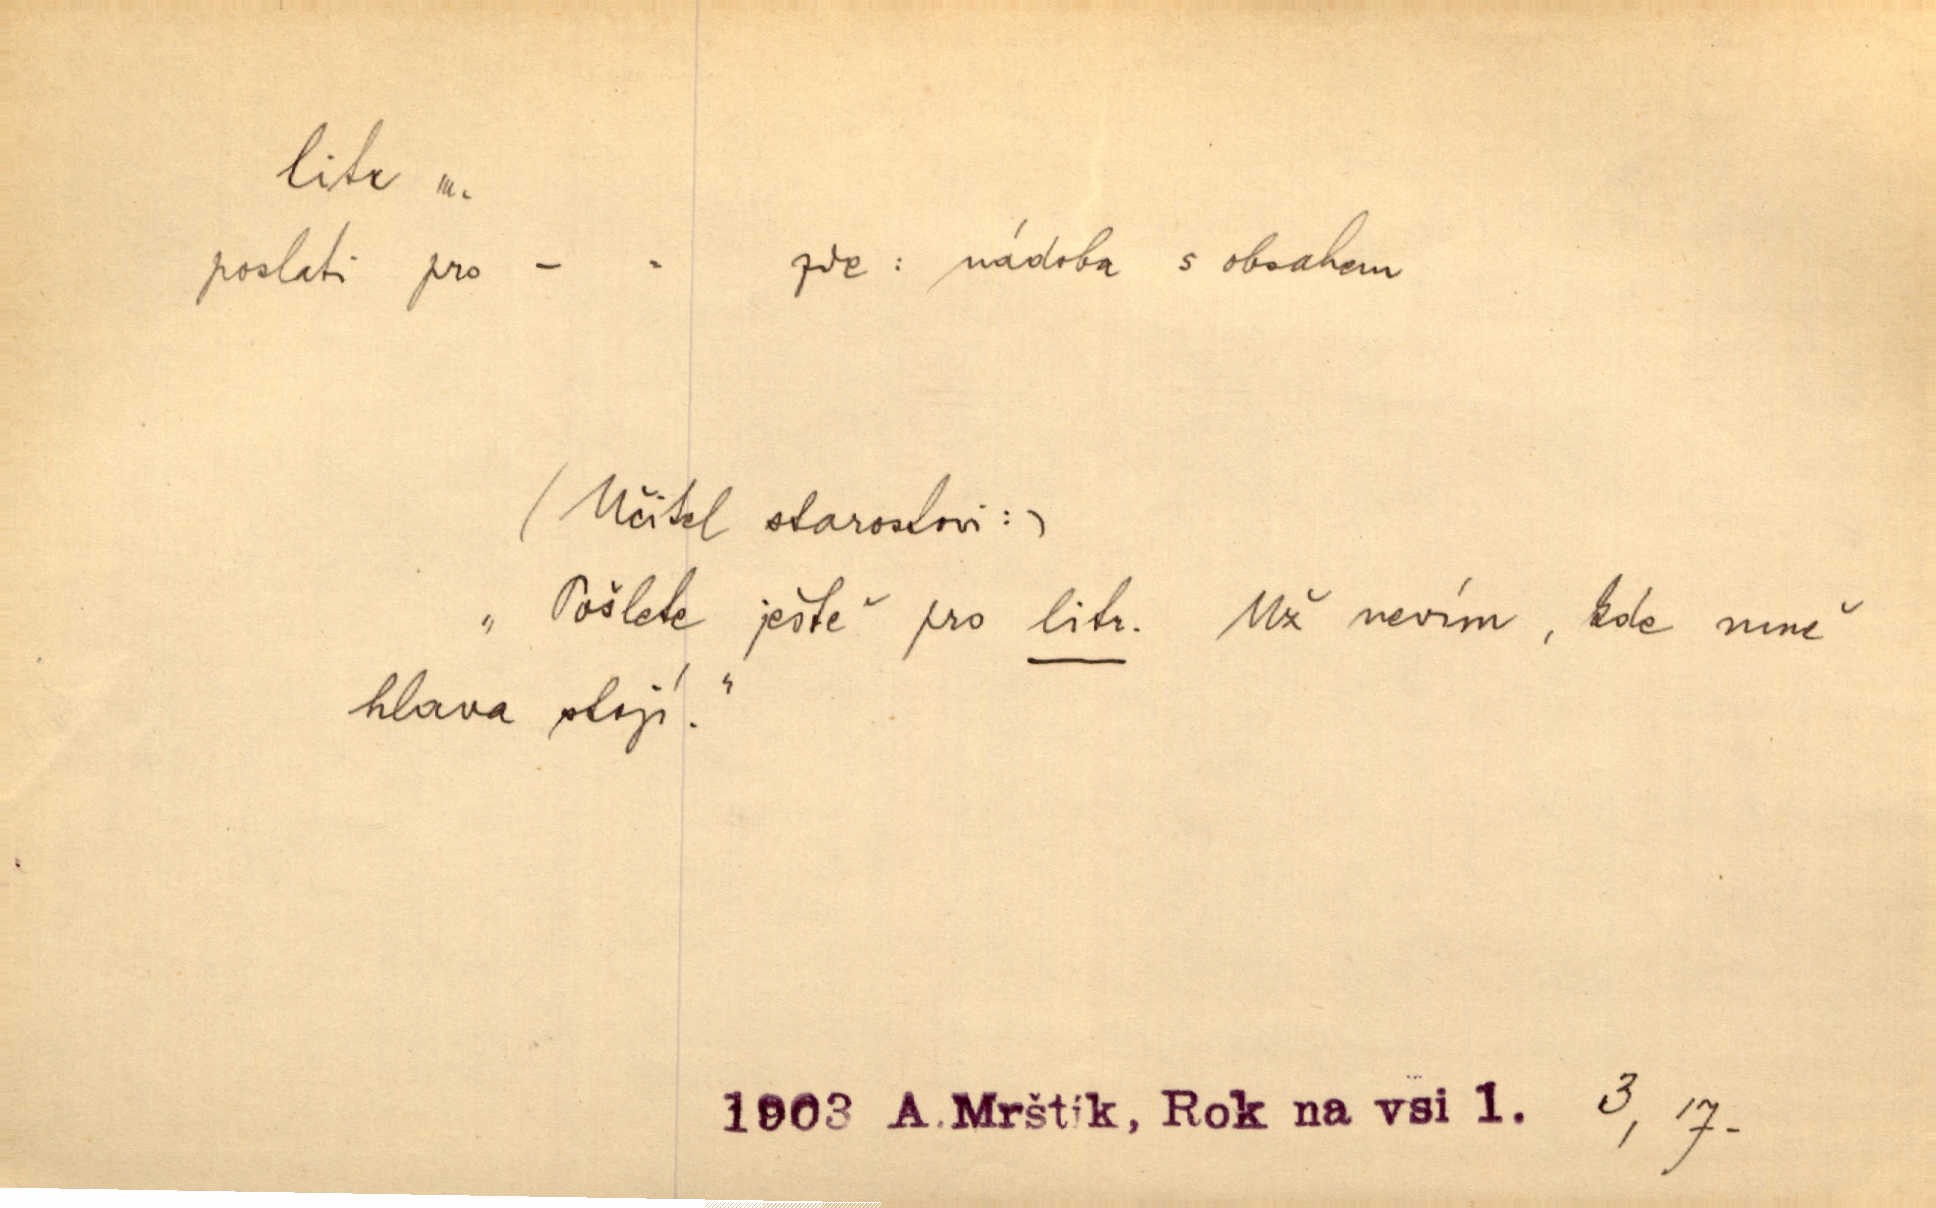 litr m.
poslati pro – - zde : nádoba s obsahem
(Učitel starostovi:)
„Pošlete ještě pro litr. Už nevím, kde mně
hlava stojí.“
1903 A.Mrštík, Rok na vsi 1. 3, 17.-